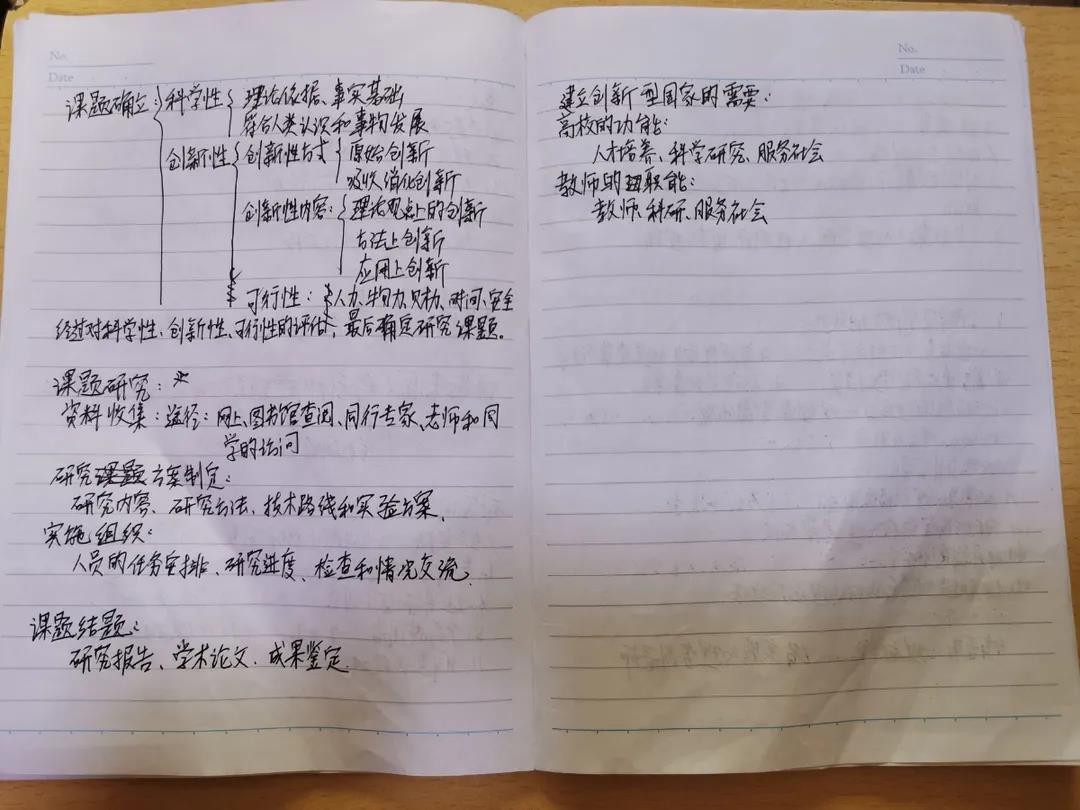 No.
Date
课题确立:{科学性{理论依据、事实基础
符合人类认识和事物发展
创新性{创新性方式{原始创新
吸收消化创新
创新性内容:{理论观点上的创新
方法上创新
应用上创新
可行性:{人力、物力、财力、时间、安全
经过对科学性、创新性、可行性的评估,最后确定研究课题。
课题研究:*
资料收集:途径:网上、图书馆查阅、同行专家、老师和同
学的访问
研究课题方案制定:
研究内容、研究方法、技术路线和实验方案.
实施组织:
人员的任务安排、研究进度、检查和情况交流.
课题结题:
研究报告、学术论文.成果鉴定.
No.
Date
建立创新型国家的需要:
高校的功能:
人才培养、科学研究、服务社会
教师的职能:
教师、科研、服务社会